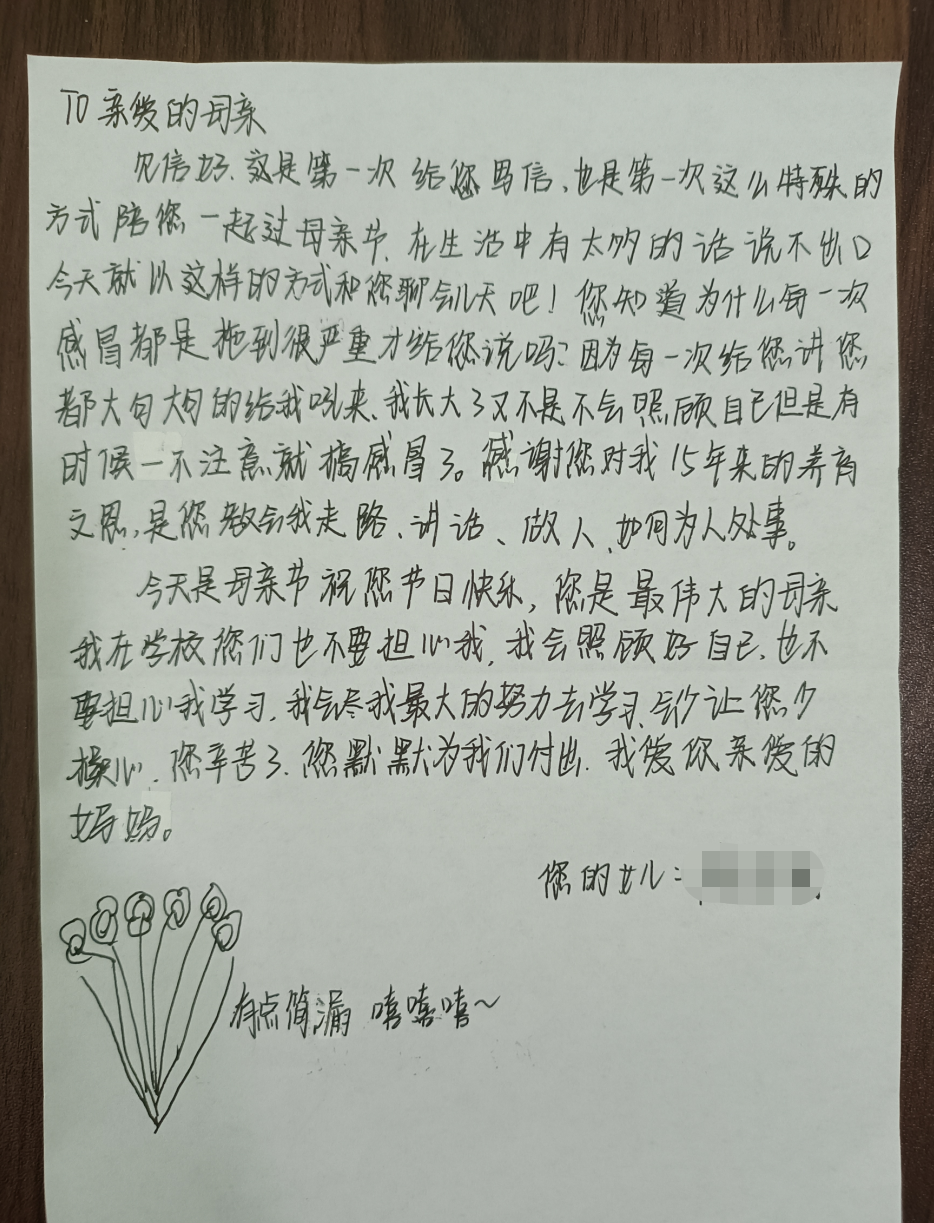 TO 亲爱的母亲
见信好.这是第一次给您写信、也是第一次这么特殊的
方式陪您一起过母亲节.在生活中有太多的话说不出口
今天就以这样的方式和您聊会儿天吧!您知道为什么每一次
感冒都是拖到很严重才给您说吗?因为每一次给您讲您
都大句大句的给我吼来、我长大了又不是不会照顾自己但是有
时候一不注意就搞感冒了。感谢您对我15年来的养育
之恩,是您教会我走路、讲话、做人、如何为人处事。
今天是母亲节祝您节日快乐,您是最伟大的母亲
我在学校您们也不要担心我,我会照顾好自己、也不
要担心我学习,我会尽我最大的努力去学习、会少让您少
操心、您辛苦了.您默默为我们付出.我爱你亲爱的
妈妈。
您的女儿:
有点简漏 嘻嘻嘻~